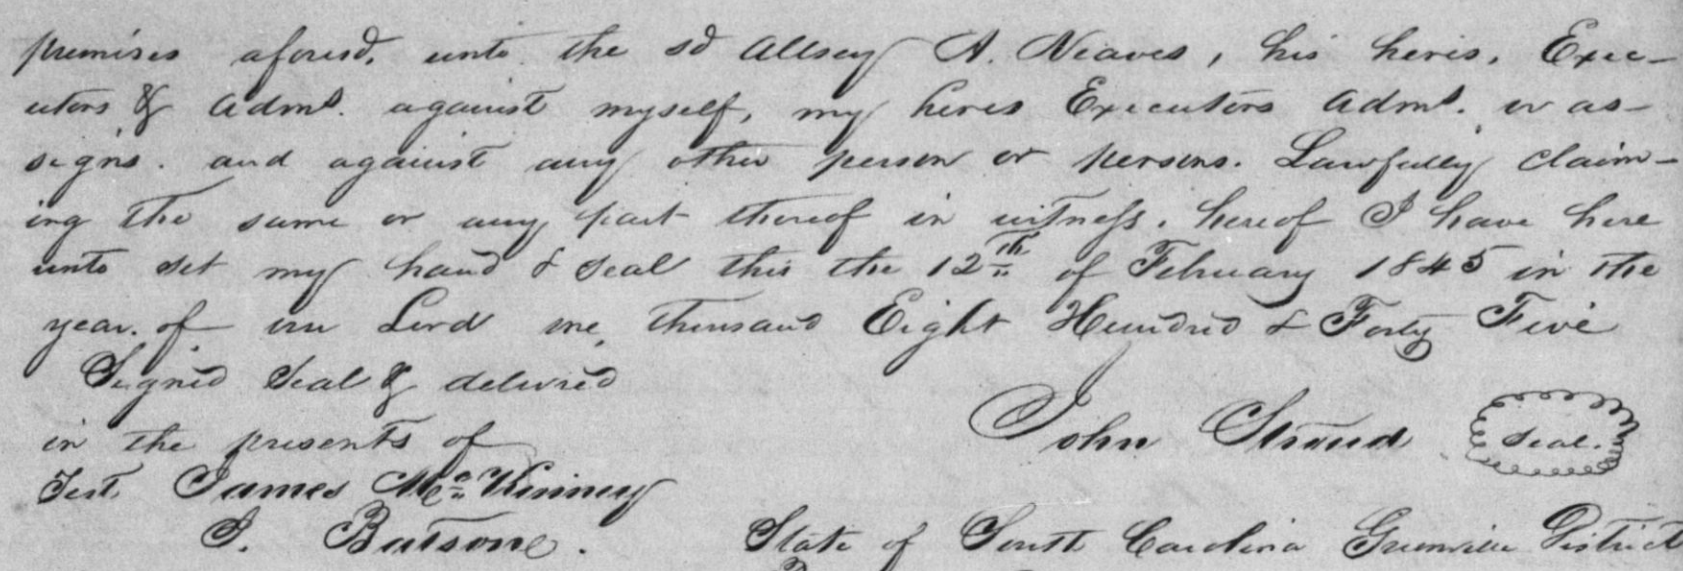 premises aforesd. unto the sd Allsey A. Neaves, his heris, Exec-
utors & Adms. against myself, my heres Executors Adms. or as-
signs. and against any other person or persons. Lawfully claim-
ing the same or any part thereof in witness. hereof I have here
unto set my hand & seal this the 12th of February 1845 in the
year. of our Lord one, thousand Eight Hundred & Forty Five
Signed Seal & delivred
in the presents of
John Stroud Seal.
Test James McKinney
J. Batsone.
State of South Carolina Greenville District